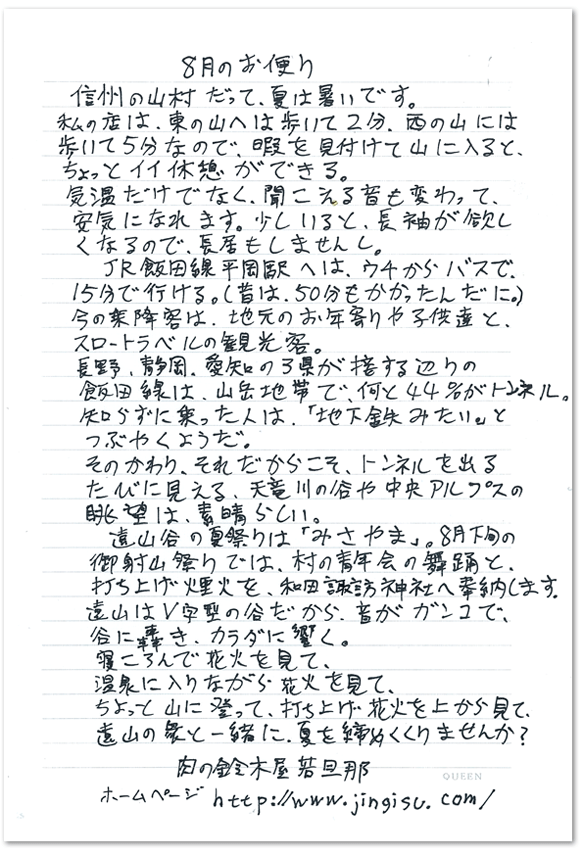 8月のお便り
信州の山村だって、夏は暑いです。
私の店は、東の山へは歩いて2分、西の山には
歩いて5分なので、暇を見付けて山に入ると、
ちょっとイイ休憩ができる。
気温だけでなく、聞こえる音も変わって、
安気になれます。少しいると、長袖が欲し
くなるので、長居もしませんし。
JR飯田線平岡駅へは、ウチからバスで、
15分で行ける。(昔は、50分もかかったんだに。)
今の乗降客は、地元のお年寄りや子供達と、
スロートラベルの観光客。
長野、静岡、愛知の3県が接する辺りの
飯田線は、山岳地帯で、何と44%がトンネル。
知らずに乗った人は、「地下鉄みたい。」と
つぶやくようだ。
そのかわり、それだからこそ、トンネルを出る
たびに見える、天竜川の谷や中央アルプスの
眺望は、素晴らしい。
遠山谷の夏祭りは「みさやま」。8月下旬の
御射山祭りでは、村の青年会の舞踊と、
打ち上げ煙火を、和田諏訪神社へ奉納します。
遠山はV字型の谷だから、音がガンコで、
谷に轟き、カラダに響く。
寝ころんで花火を見て、
温泉に入りながら花火を見て、
ちょっと山に登って、打ち上げ花火を上から見て、
遠山の衆と一緒に、夏を締めくくりませんか?
肉の鈴木屋若旦那
QUEEN
ホームページ http://www.jingisu.com/